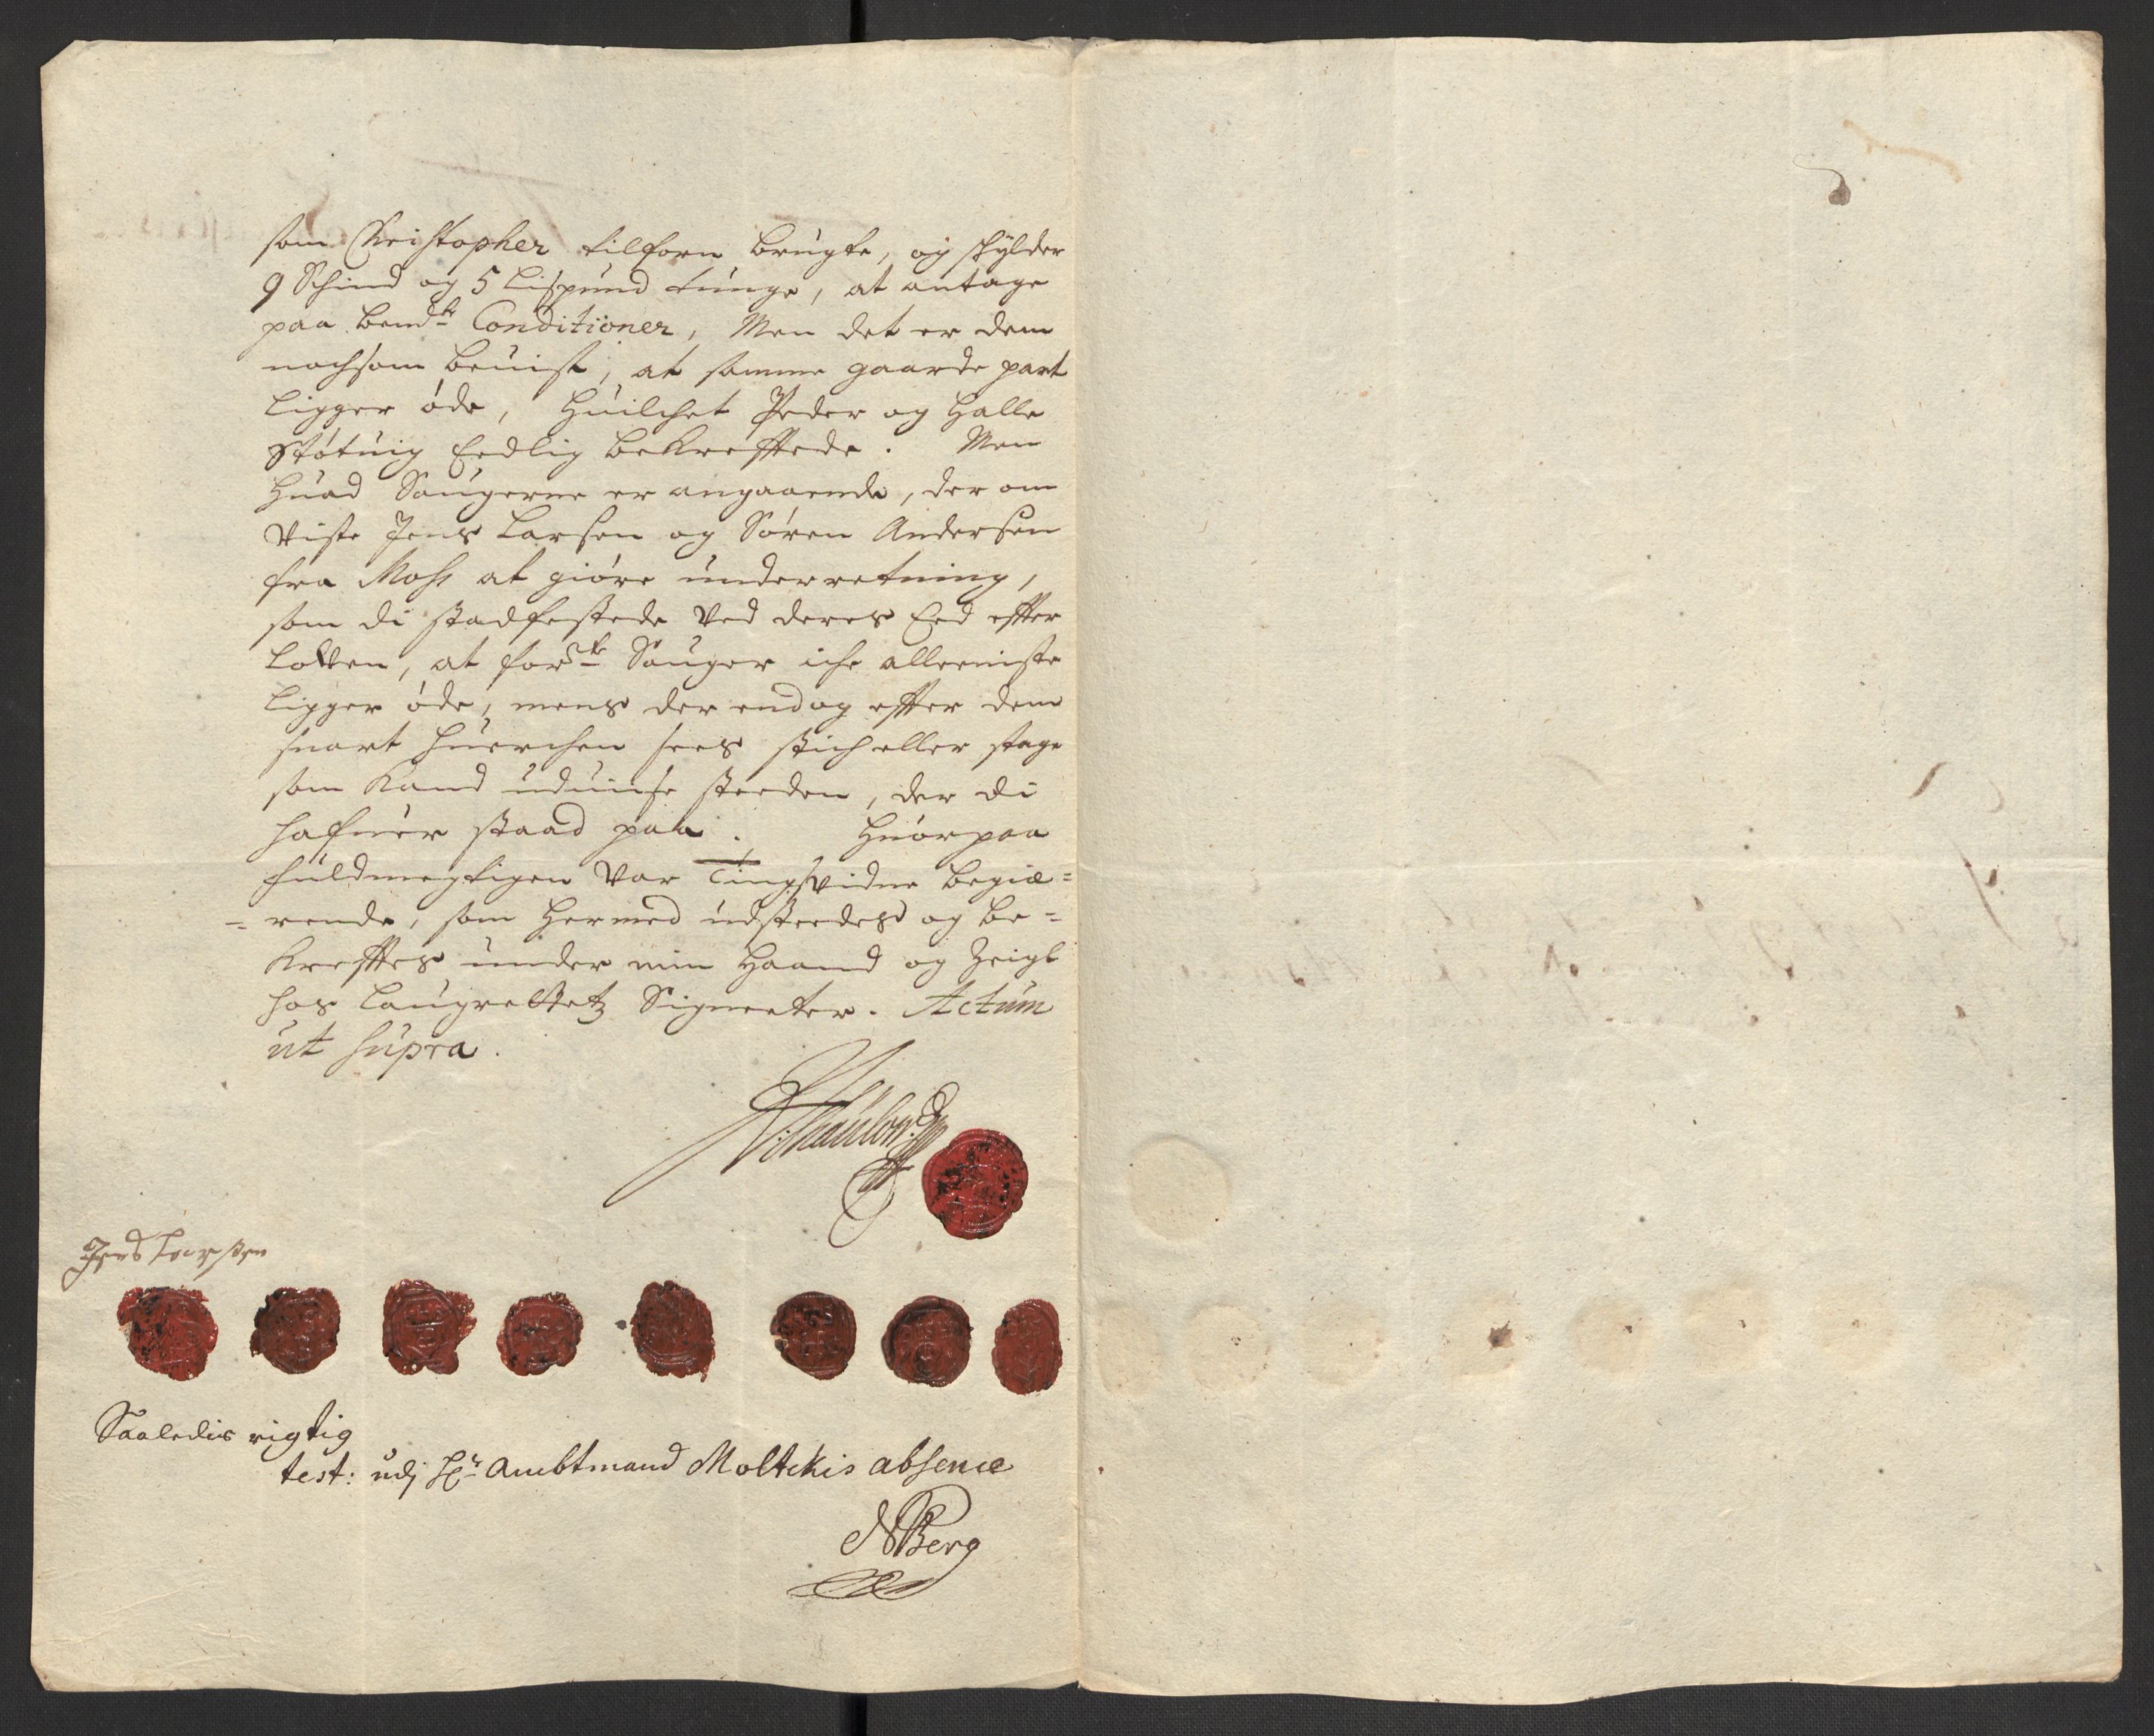 som Christopher tilforn brugte, og skylder
9 Schind og 5 Lispund tunge, at antage
paa bemte Conditioner, Men det er dem
nochsom beuist, at samme gaarde part
ligger øde, Huilchet Peder og Halle
Støtuig Eedlig bekreffttede. Men
Huad Saugerne er angaaende, der om
viste Jens Larsen og Søren Andersen
fra Moss at giøre underretning,
som di stadfestede ved deres Eed effter
Lowen, at forste Sauger iche alleeniste
ligger øde, mens der endog effter dem
snart huerchen sees stich eller stage
som kand uduise steeden, der di
hafuer staad paa. Huorpaa
fuldmegtigen var Tingsvidne begiæ=
=rende, som hermed udsteedes og be=
kreffttes under min Haand og Zeigl
hos Laugrettetz Signeter. Actum
ut supra.
Jens Larssen
Saaledis rigtig
test: udj Hr Ambtmand Moltekis absence
NBerg